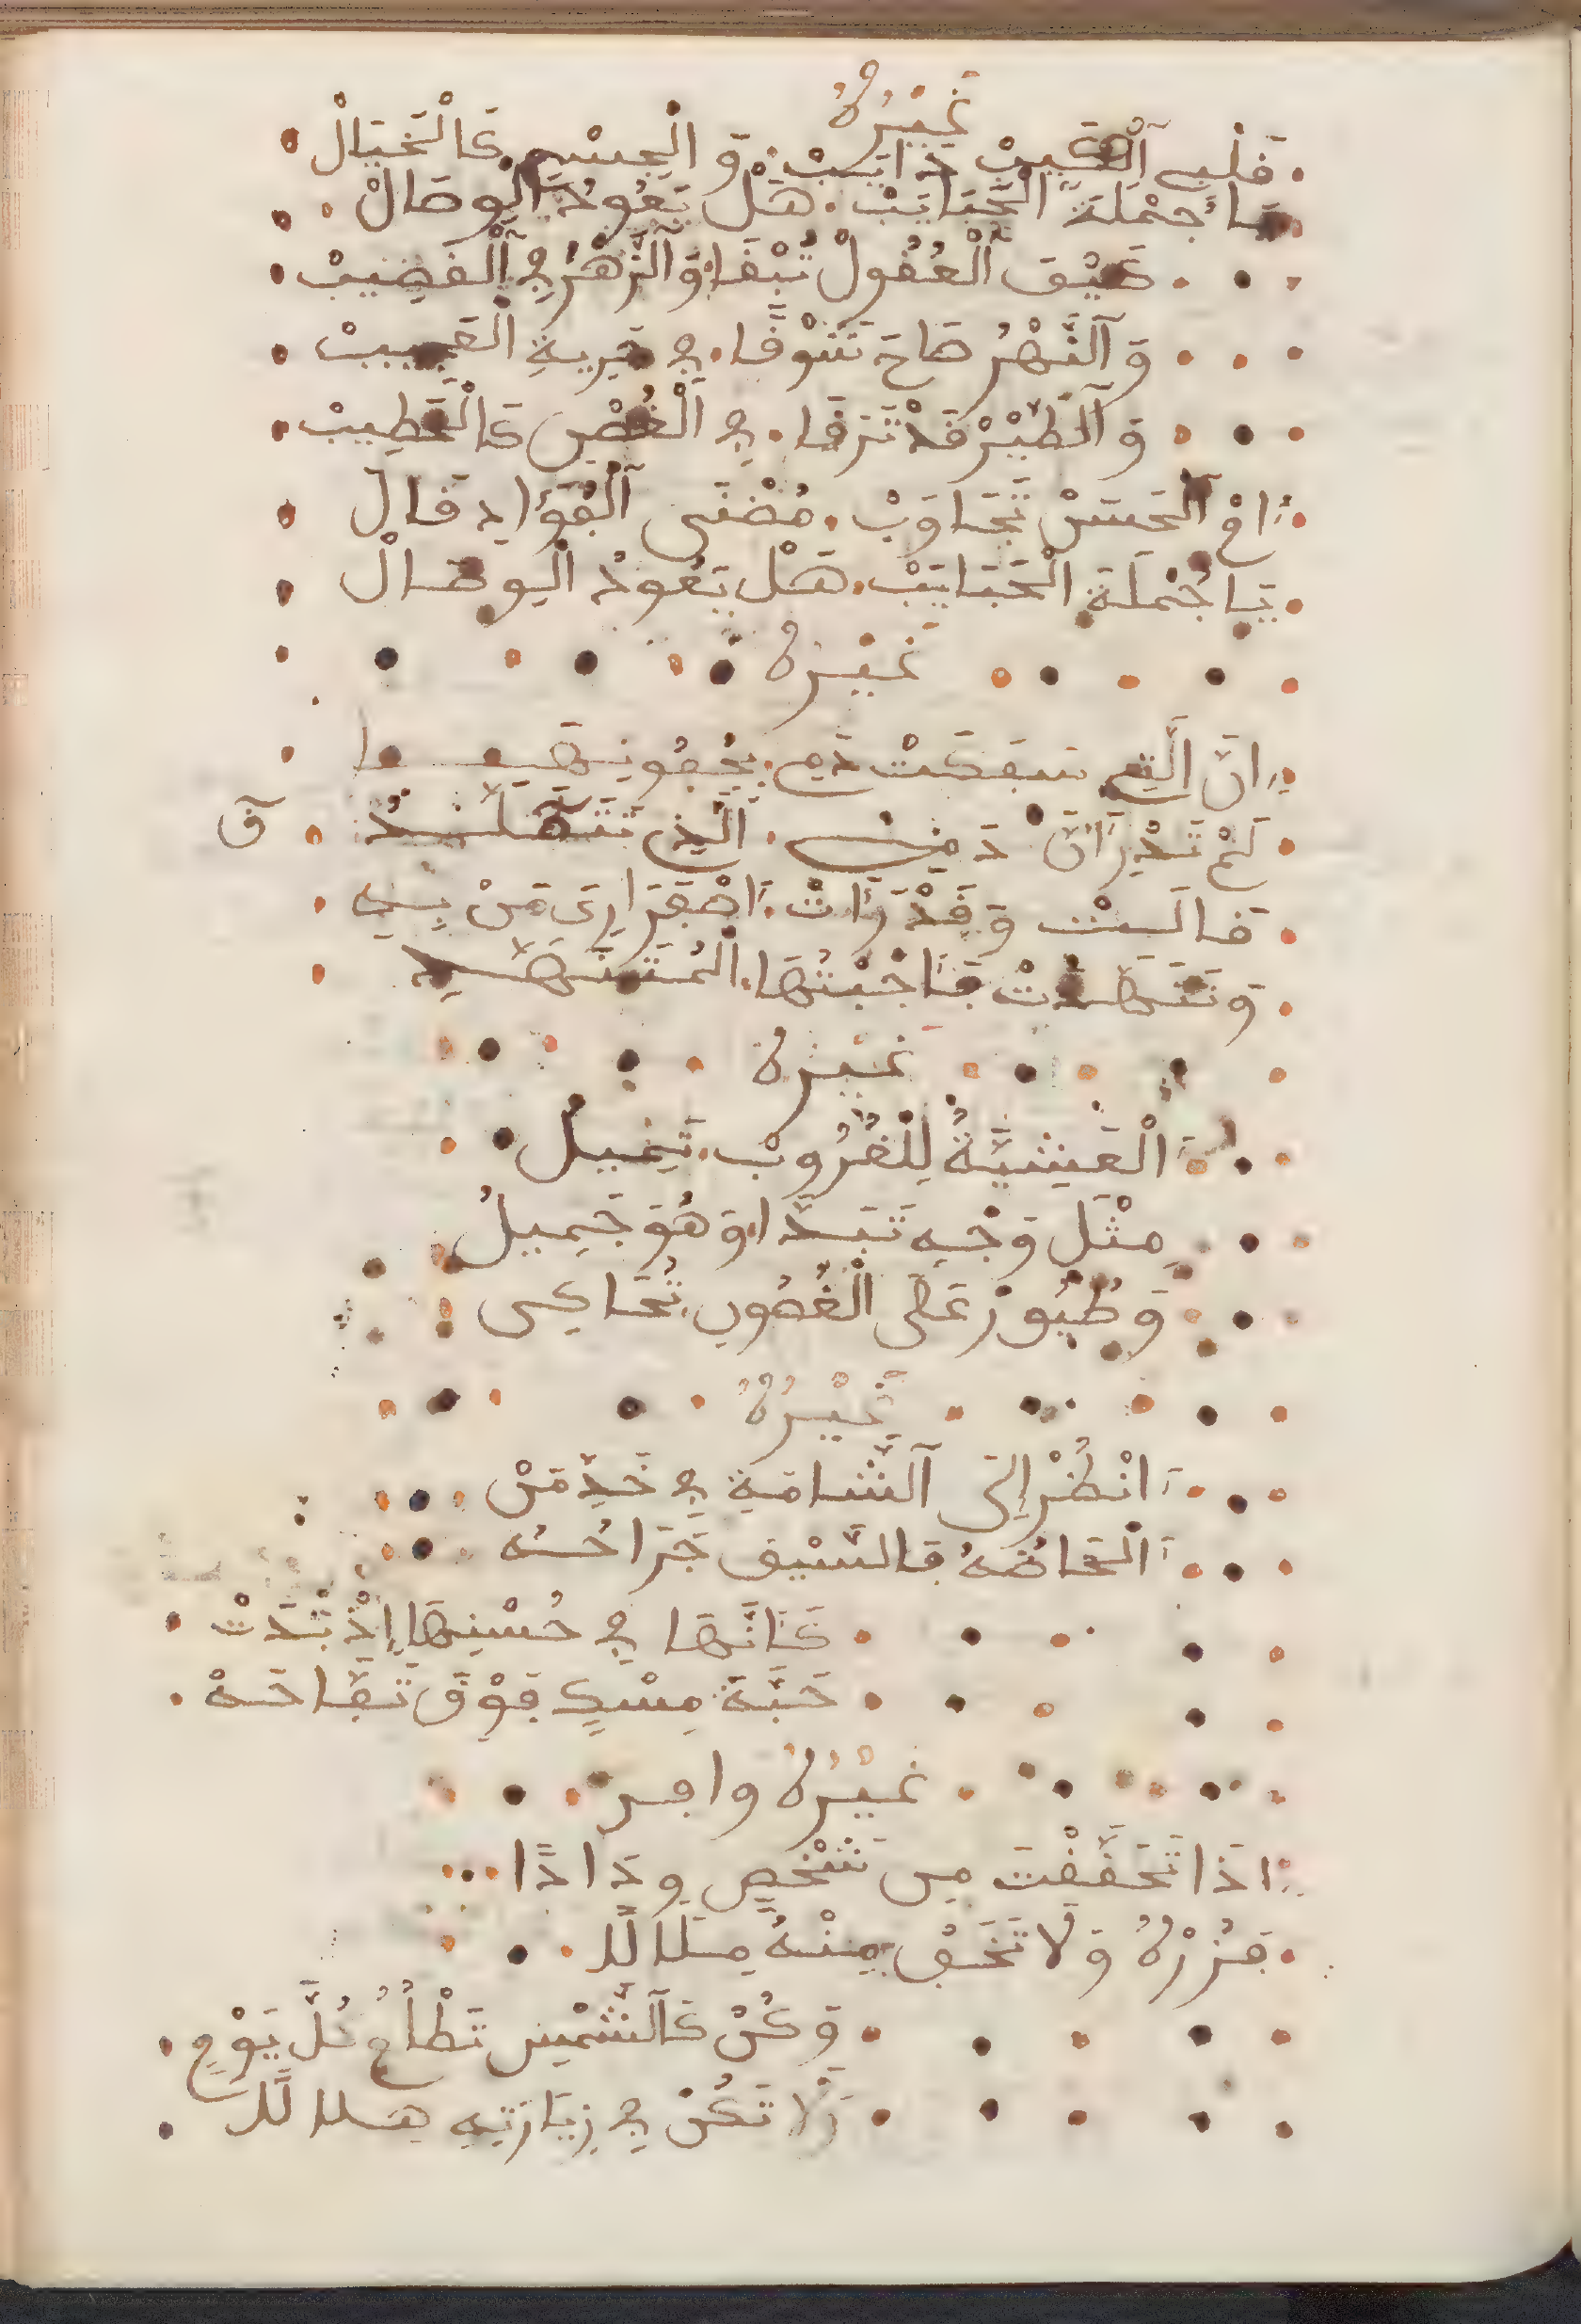 غَيْرُهُ
قَلْبِي الْكَئِيبْ ذَايَبْ. وَ الْجِسْمِ كَالْخَيَالْ
يَا جُمْلَةَ الْحَبَايَبْ. هَلْ يَعُودُ الْوِصَالْ
ضَيْقَ الْعُقُولْ تُبْقَا. وَالزَّهْرُ فِي الْقَضِيبْ
وَ النَّهْرُ صَاحَ شَوْقًا. فِي جَرْيِهِ الْعَجِيبْ
وَ الطَّيْرْ قَدْ تَرَقَا. فِي الْغُصْنِ كَالْخَطِيبْ
تَجَاوَبْ. مُضْنَى الْفُؤَادِ قَالَ
يَا جُمْلَةَ الْحَبَايَبْ. هَلْ يَعُودُ الْوِصَالْ
غَيْرُهُ
اِنَّ الَّتِي سَفَكَتْ دَمِي. بِجُفُونِهَا
لَمْ تَدْرِ أَنَّ دَمِي. الَّذِي تَتَقَلَّدُ ق
قَالَتْ وَ قَدْ رَأَتْ. اَصْفِرَارِي مَنْ بِهِ
وَ تَنَهَّدَتْ فَأَجَبْتُهَا. الْمُتَنَهِّدِ
غَيْرُهُ
الْعَشِيَّةُ لِلْغُرُوبْ. تَمِيلُ
مِثْلَ وَجْهٍ تَبَدَّا. وَ هُوَ جَمِيلُ
وَ طُيُورْ عَلَى الْغُصُونِ. تُحَاكِي
غَيْرُهُ
اَنْظُرْ إِلَى الشَّامَةِ فِي خَدِّ مَنْ
اَلْحَاظُهُ فَالسَّيْفِ جَرَّاحُهُ
كَأَنَّهَا فِي حُسْنِهَا إِذْ بَدَتْ
حَبَّةَ مِسْكٍ فَوْقَ تَفَّاحَهْ
غَيْرُهُ وافر
اِذَا تَحَقَّقْتَ مِن شَخْصٍ وِدَادًا
فَزُرْهُ وَ لَا تَخَفْ مِنْهُ مِلَالَا
وَ كُنْ كَالشَّمْسِ تَطْلُعُ كُلَّ يَوْمٍ
وَلَا تَكُنْ فِي زِيَارَتِهِ هِلَالَا